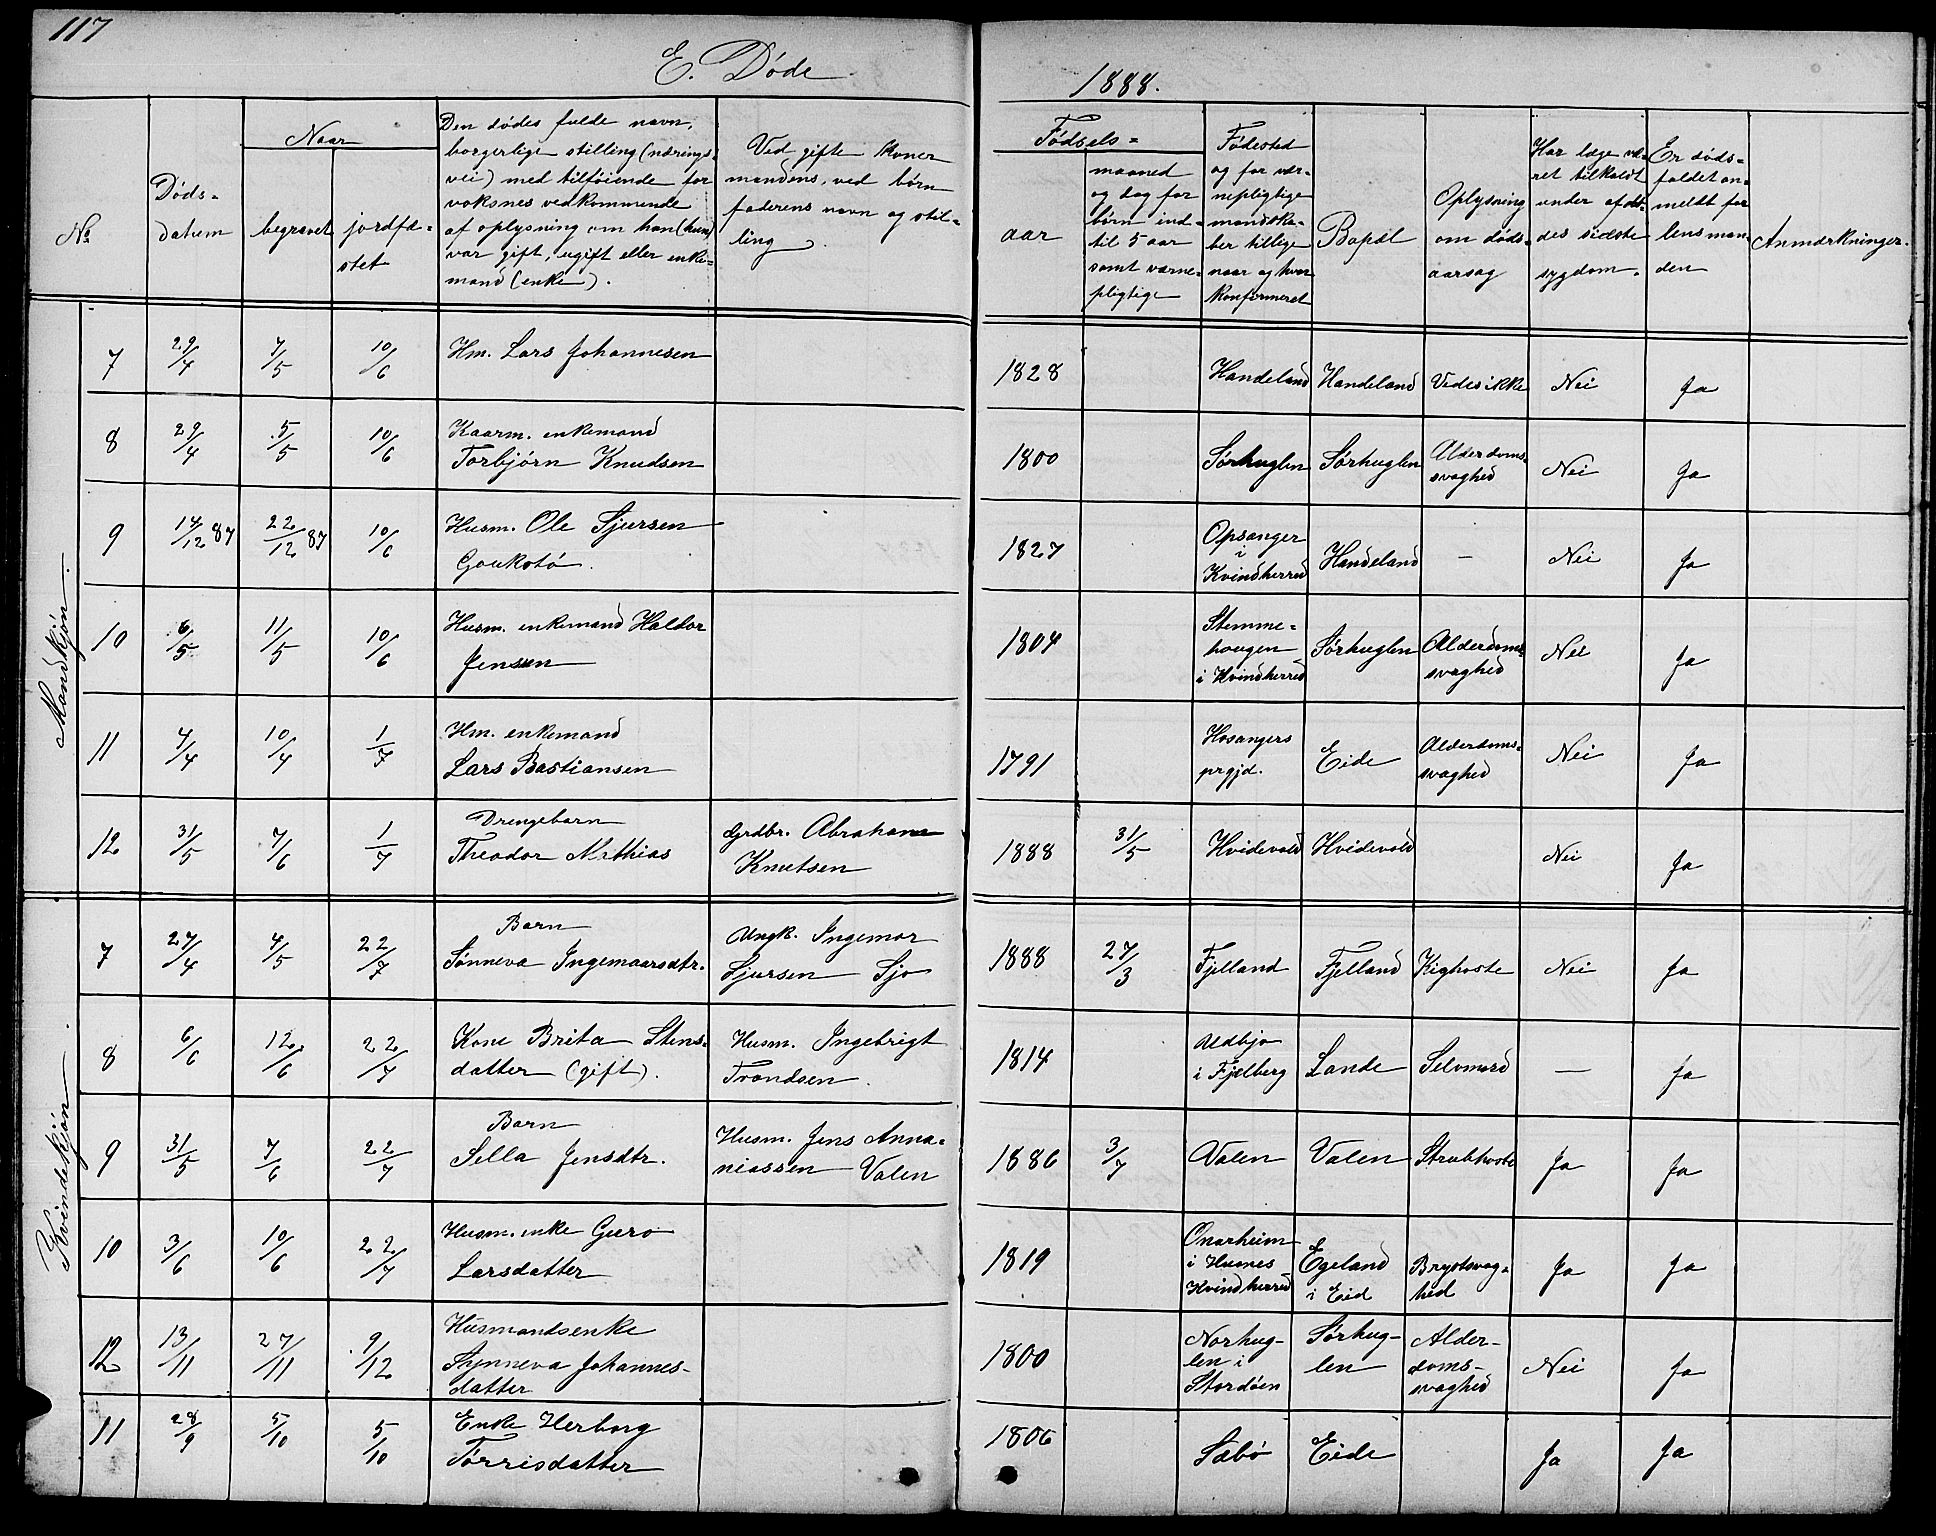 117
E. Døde
1888.
No.
Døds-
datum
Naar
begravet
jordfæ-
stet
Den dødes fulde navn,
borgerlige stilling (nærings-
vei) med tilføiende for
voksnes vedkommende
af oplysning om han (hun)
var gift, ugift eller enke-
mand (enke).
Ved gifte koner
mandens, ved børn
faderens navn og stil-
ling
Fødsels-
aar
maaned
og dag for
børn ind-
til 5 aar
samt værne-
pligtige
Fødested
og for vær-
nepligtige
mandska-
ber tillige
naar og hvor
konfirmeret
Bopæl
Oplysning
om døds-
aarsag
Har læge væ-
ret tilkaldt
under afdø-
des sidste
sygdom.
Er døds-
faldet an-
meldt for
lensman-
den
Anmærkninger.
Mandkjøn.
7 29/4 7/5 10/6 Hm. Lars Johannesen 1828 Handeland Handeland Vides ikke Nei Ja
8 29/4 5/5 10/6 Kaarm. enkemand
Torbjörn Knudsen 1800 Sørhuglen Sørhuglen Alderdoms-
svaghed Nei Ja
9 14/12 87 22/12 87 10/6 Husm. Ole Sjursen
Goukstø. 1827 Opsanger
i
Kvindherred Handeland — Nei Ja
10 6/5 11/5 10/6 Husm. enkemand Haldor
Jensen 1804 Stemme-
hougen
i Kvindherred Sørhuglen Alderdoms-
svaghed Nei Ja
11 4/4 10/4 1/7 Hm. enkemand
Lars Bastiansen 1791 Hosangers
prgjd. Eide Alderdoms-
svaghed Nei Ja
12 31/5 7/6 1/7 Drengebarn
Theodor Mathias Grdbr. Abraham
Knutsen 1888 31/5 Hvidevold Hvidevold Nei Ja
Kvindekjøn.
7 27/4 4/5 22/7 Barn
Sønneva Ingemaarsdtr. Ungk. Ingemar
Sjursen Sjo 1888 27/3 Fjelland Fjelland Kighoste Nei Ja
8 6/6 12/6 22/7 Kone Brita Stens-
datter (gift). Husm. Ingebrigt
Trondsen. 1814 Uldbjo
i Fjelberg Lande Selvmord — Ja
9 31/5 7/6 22/7 Barn
Sella Jensdtr. Husm. Jens Anna-
niassen Valen 1886 3/7 Valen Valen Strubhoste Ja Ja
10 3/6 10/6 22/7 Husm. enke Guro
Larsdatter 1819 Onarheim
i Husnes
Kvindherred Egeland
i Eid Brystsvag-
hed Ja Ja
12 13/11 27/11 9/12 Husmandsenke
Synneva Johannes-
datter 1800 Norhug-
len i
Stordøen Sørhug-
len Alder-
doms-
svaghed Nei Ja
11 28/9 5/10 5/10 Enke Herborg
Tørrisdatter 1806 Sæbø Eide Ja Ja